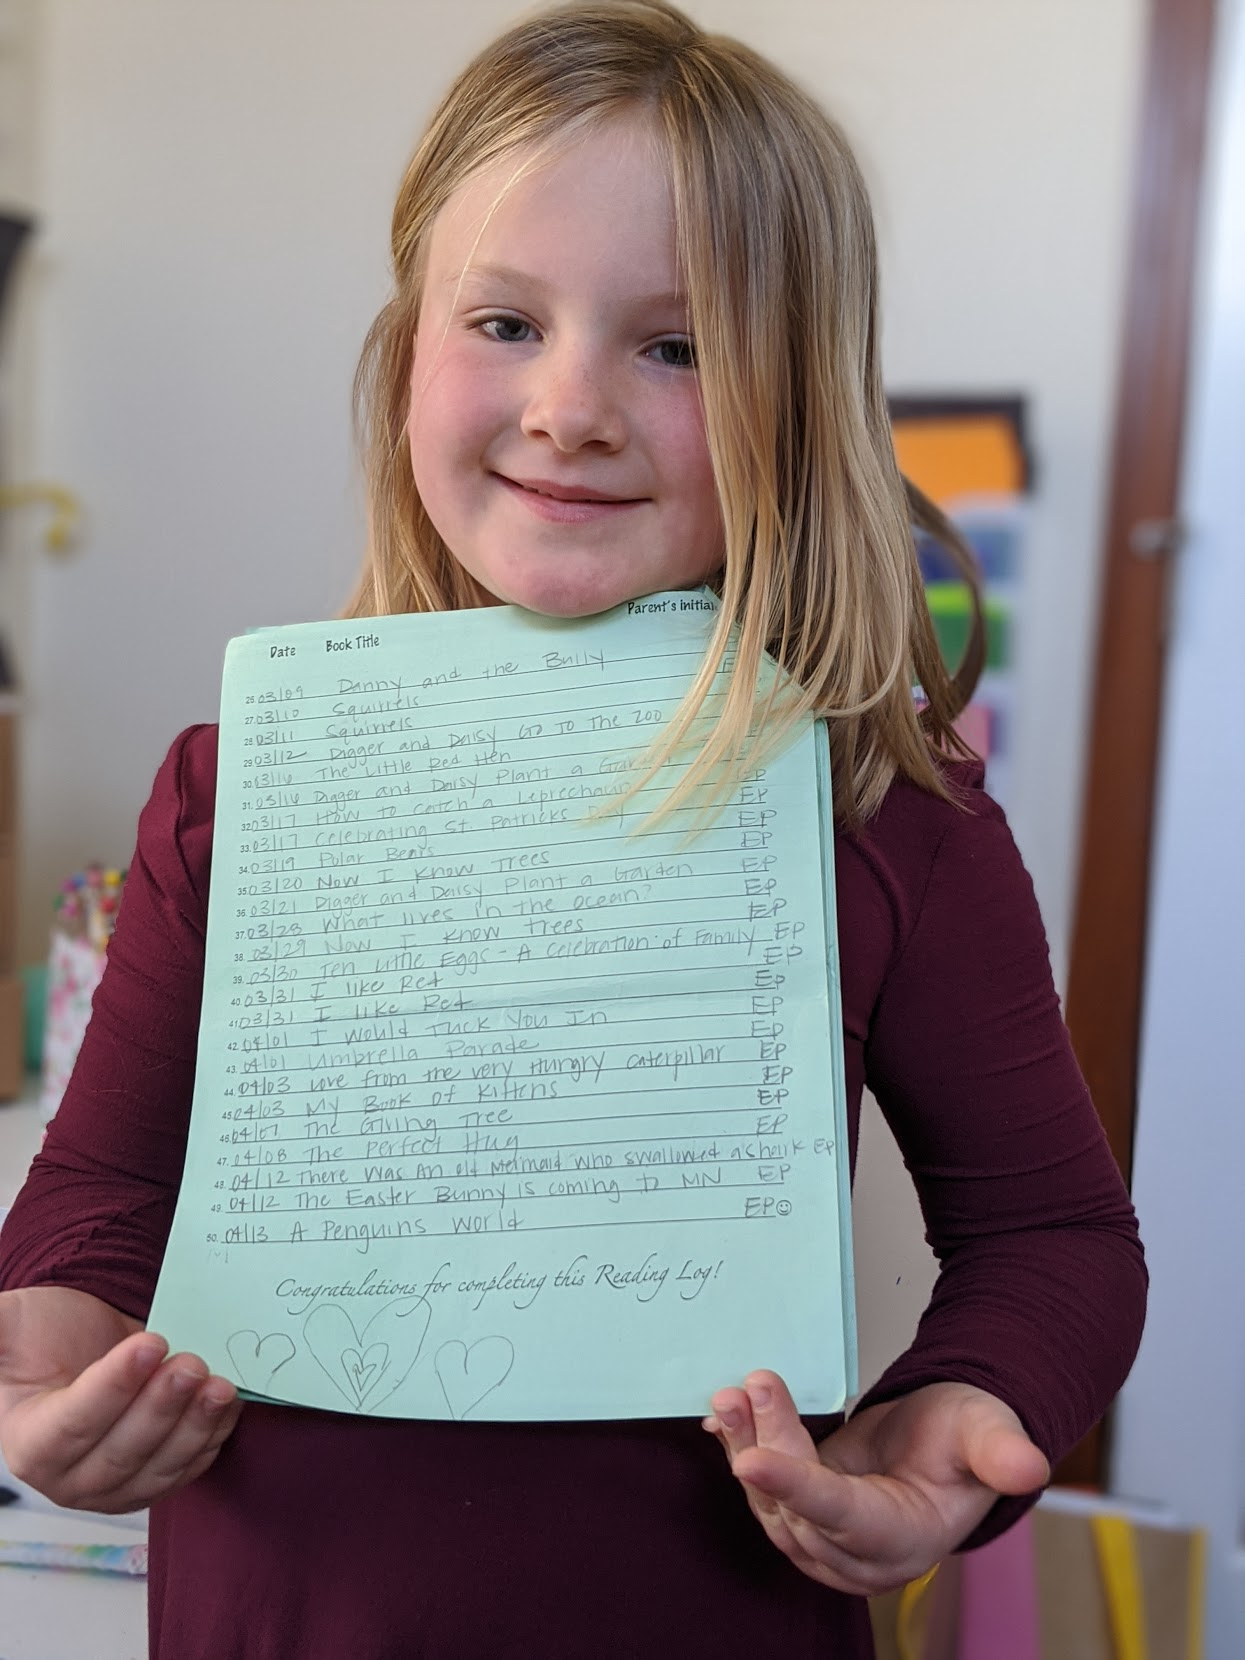 Date Book Title Parent's initia
26. 03/09 Danny and the Bully
27. 03/10 Squirrels E
28. 03/11 Squirrels
29. 03/12 Digger and Daisy Go To The Zoo
30. 03/16 The Little Red Hen
31. 03/16 Digger and Daisy Plant a Garden
32. 03/17 How to catch a Leprechaun EP
33. 03/17 Celebrating St. Patricks Day EP
34. 03/19 Polar Bears EP
35. 03/20 Now I Know Trees EP
36. 03/21 Digger and Daisy Plant a Garden EP
37. 03/28 What lives in the ocean? EP
38. 03/29 Now I Know Trees EP
39. 03/30 Ten Little Eggs - A celebration of Family EP
40. 03/31 I like Red EP
41. 03/31 I like Red EP
42. 04/01 I would Tuck You In EP
43. 04/01 Umbrella Parade EP
44. 04/03 Love from the very Hungry caterpillar EP
45. 04/03 My Book of Kittens EP
46. 04/07 The Giving Tree EP
47. 04/08 The Perfect Hug EP
48. 04/12 There Was An old Mermaid who swallowed a shark EP
49. 04/12 The Easter Bunny is coming to MN EP
50. 04/13 A Penguins World EP☺
Congratulations for completing this Reading Log!